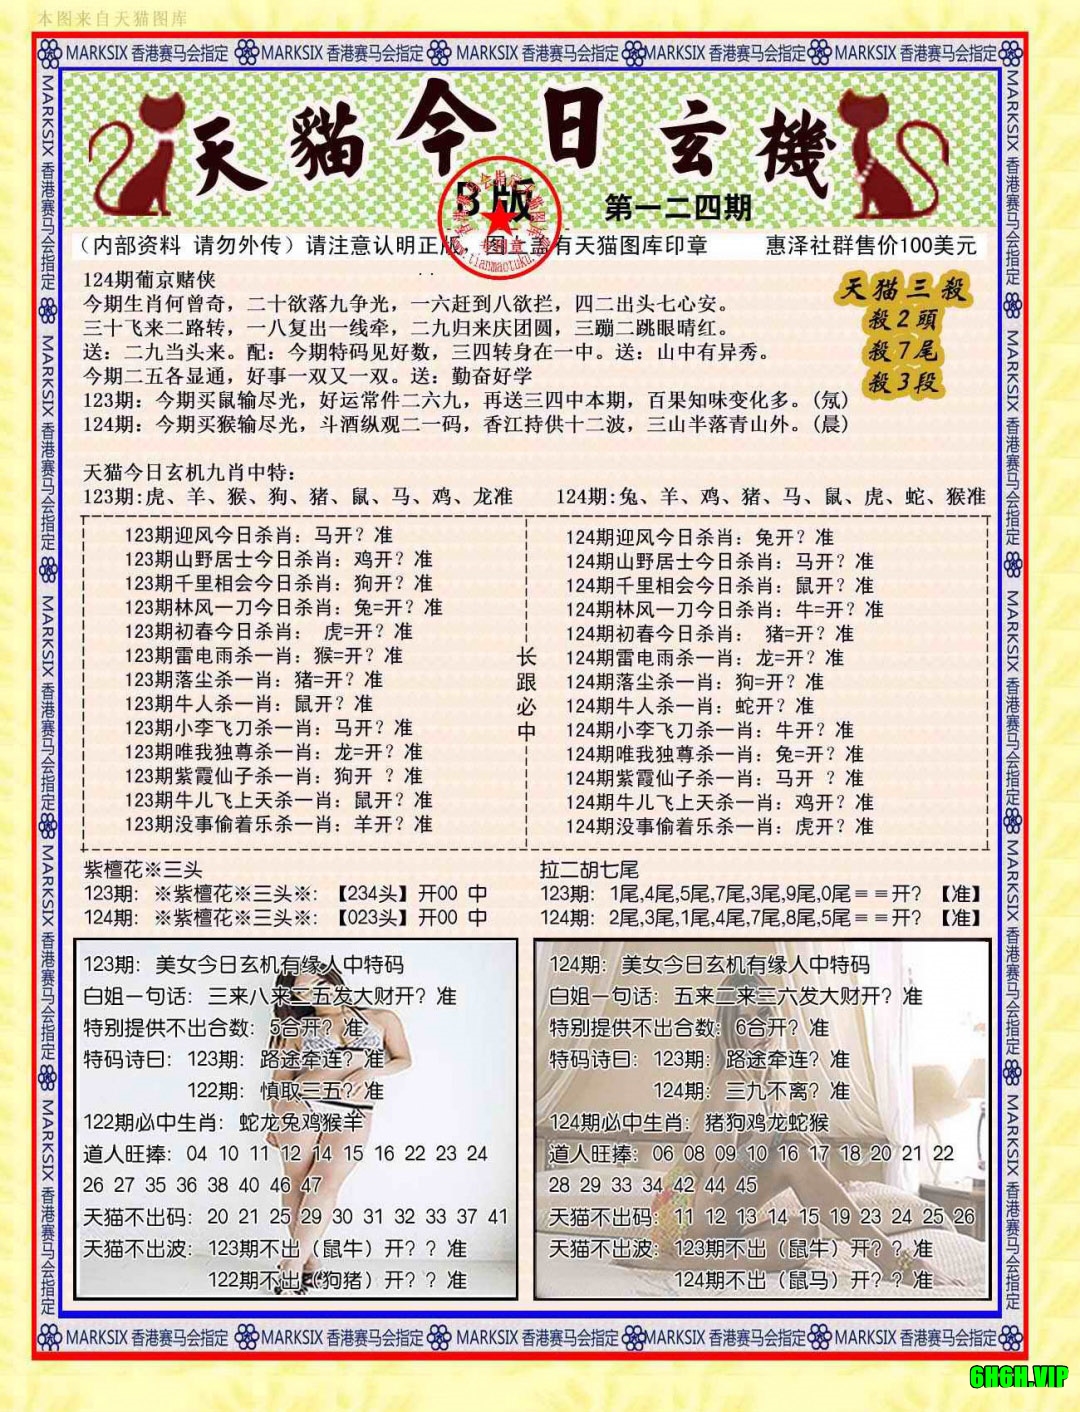 本图来自天猫图库
MARKSIX 香港赛马会指定 MARKSIX 香港赛马会指定 MARKSIX 香港赛马会指定 MARKSIX 香港赛马会指定 MARKSIX 香港赛马会指定
天貓今日玄機
B版
第一二四期
（内部资料 请勿外传）请注意认明正版，图上盖有天猫图库印章 惠泽社群售价100美元
124期葡京赌侠
今期生肖何曾奇，二十欲落九争光，一六赶到八欲拦，四二出头七心安。
三十飞来二路转，一八复出一线牵，二九归来庆团圆，三蹦二跳眼晴红。
送：二九当头来。配：今期特码见好数，三四转身在一中。送：山中有异秀。
今期二五各显通，好事一双又一双。送：勤奋好学
123期：今期买鼠输尽光，好运常件二六九，再送三四中本期，百果知味变化多。(氖)
124期：今期买猴输尽光，斗酒纵观二一码，香江持供十二波，三山半落青山外。(晨)
天猫三殺
殺2頭
殺7尾
殺3段
天猫今日玄机九肖中特：
123期:虎、羊、猴、狗、猪、鼠、马、鸡、龙准 124期:兔、羊、鸡、猪、马、鼠、虎、蛇、猴准
123期迎风今日杀肖：马开？准
123期山野居士今日杀肖：鸡开？准
123期千里相会今日杀肖：狗开？准
123期林风一刀今日杀肖：兔=开？准
123期初春今日杀肖： 虎=开？准
123期雷电雨杀一肖：猴=开？准
123期落尘杀一肖：猪=开？准
123期牛人杀一肖：鼠开？准
123期小李飞刀杀一肖：马开？准
123期唯我独尊杀一肖：龙=开？准
123期紫霞仙子杀一肖：狗开 ？准
123期牛儿飞上天杀一肖：鼠开？准
123期没事偷着乐杀一肖：羊开？准
长跟必中
124期迎风今日杀肖：兔开？准
124期山野居士今日杀肖：马开？准
124期千里相会今日杀肖：鼠开？准
124期林风一刀今日杀肖：牛=开？准
124期初春今日杀肖： 猪=开？准
124期雷电雨杀一肖：龙=开？准
124期落尘杀一肖：狗=开？准
124期牛人杀一肖：蛇开？准
124期小李飞刀杀一肖：牛开？准
124期唯我独尊杀一肖：兔=开？准
124期紫霞仙子杀一肖：马开 ？准
124期牛儿飞上天杀一肖：鸡开？准
124期没事偷着乐杀一肖：虎开？准
紫檀花※三头
123期：※紫檀花※三头※：【234头】开00 中
124期：※紫檀花※三头※：【023头】开00 中
拉二胡七尾
123期：1尾,4尾,5尾,7尾,3尾,9尾,0尾＝＝开？【准】
124期：2尾,3尾,1尾,4尾,7尾,8尾,5尾＝＝开？【准】
123期：美女今日玄机有缘人中特码
白姐一句话：三来八来二五发大财开？准
特别提供不出合数：5合开？准
特码诗曰：123期：路途牵连？准
122期：慎取三五？准
122期必中生肖：蛇龙兔鸡猴羊
道人旺捧：04 10 11 12 14 15 16 22 23 24
26 27 35 36 38 40 46 47
天猫不出码：20 21 25 29 30 31 32 33 37 41
天猫不出波：123期不出（鼠牛）开？？准
122期不出（狗猪）开？？准
124期：美女今日玄机有缘人中特码
白姐一句话：五来二来三六发大财开？准
特别提供不出合数：6合开？准
特码诗曰：123期：路途牵连？准
124期：三九不离？准
124期必中生肖：猪狗鸡龙蛇猴
道人旺捧：06 08 09 10 16 17 18 20 21 22
28 29 33 34 42 44 45
天猫不出码：11 12 13 14 15 19 23 24 25 26
天猫不出波：123期不出（鼠牛）开？？准
124期不出（鼠马）开？？准
MARKSIX 香港赛马会指定 MARKSIX 香港赛马会指定 MARKSIX 香港赛马会指定 MARKSIX 香港赛马会指定 MARKSIX 香港赛马会指定
6H6H.VIP